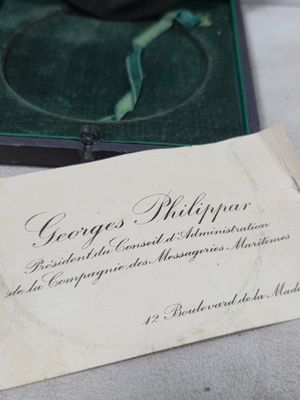 Georges Philippar
Président du Conseil d'Administration
de la Compagnie des Messageries Maritimes
12 Boulevard de la Made